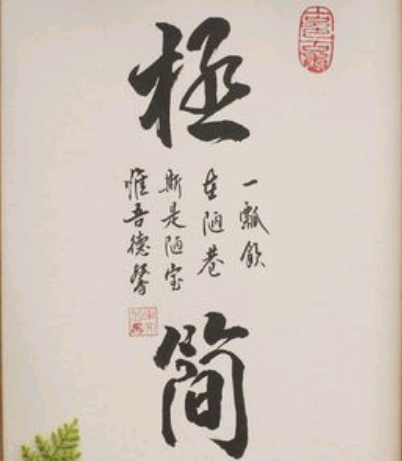 極
一瓢飲
在陋巷
斯是陋室
惟吾德馨
簡